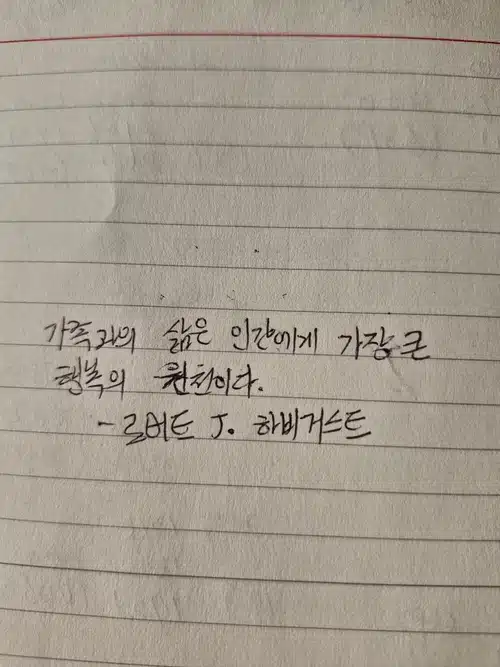 가족과의 삶은 인간에게 가장 큰
행복의 원천이다.
- 로버트 J. 하비거스트